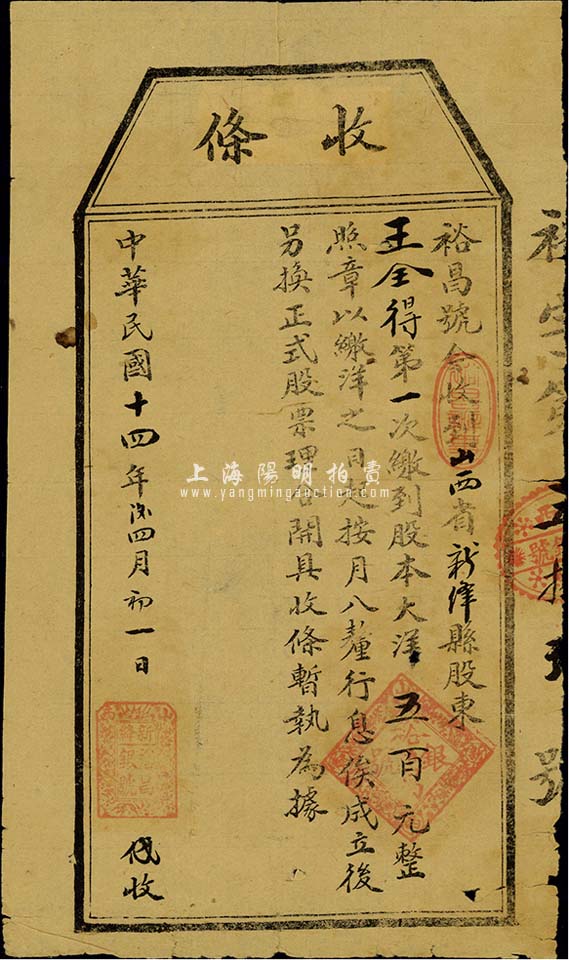 收條
裕昌號今收到山西省新絳縣股東
王全得第一次繳到股本大洋五百元整
照章以繳洋之日起按月八釐行息俟成立後
另換正式股票理合開具收條暫執為據
中華民國十四年四月初一日
代收
號
上海陽明拍賣
www.yangmingauction.com